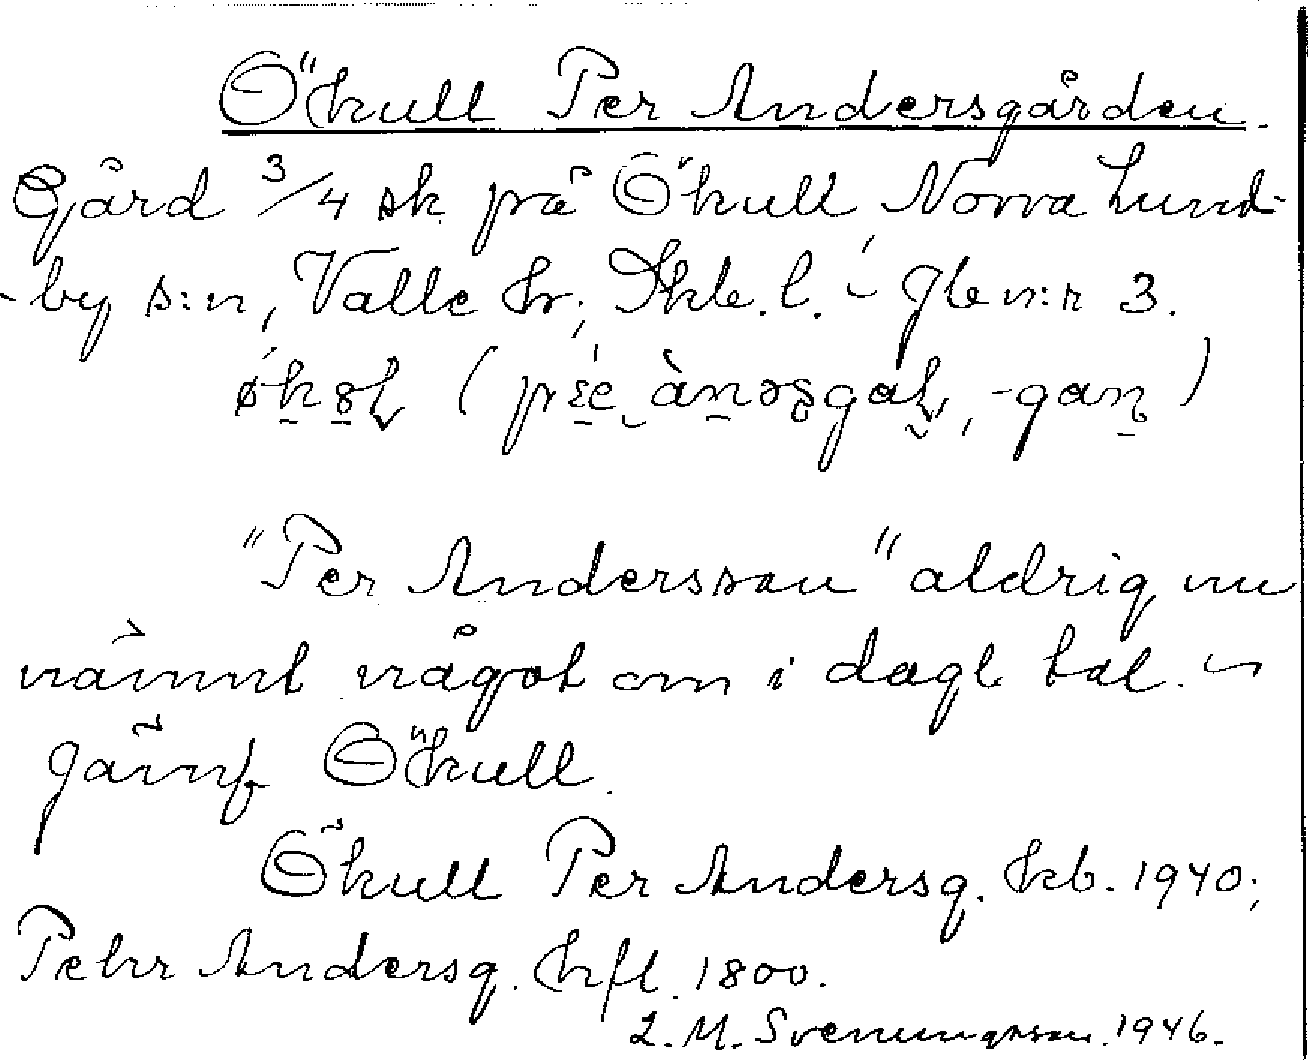 Ökull Per Andersgården.
Gård 3/4 sk på Ökull Norra Lund-
-by s:n, Valle hr; Skb. l. – Jb n:r 3.
"Per Andersson" aldrig nu
nämnt något om i dagl. tal. –
Jämf Ökull.
Ökull Per Andersg. kb. 1940;
Pehr Andersg. hfl. 1800.
L. M. Svenungsson. 1946.